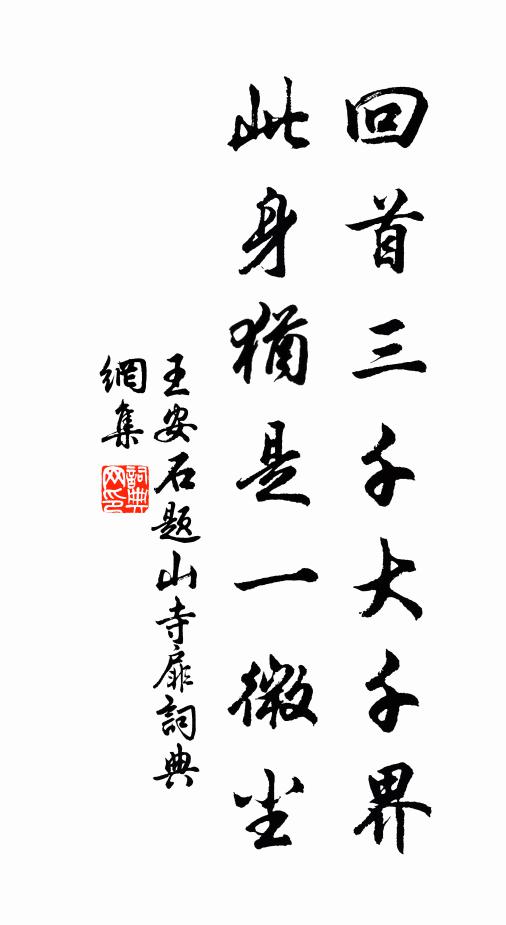 回首三千大千界
此身猶是一微尘
王安石题山寺扉詞典
網集
詞典
网印